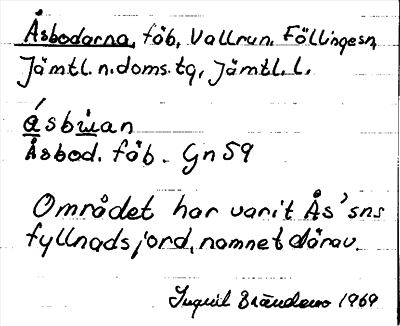 Åsbodarna, fäb, Vallrun. Föllingesn,
Jämtl. n. doms. tg, Jämtl. l.
ásbu̇an
Åsbod. fäb. Gn 59
Området har varit Ås'sns
fyllnadsjord, namnet därav.
1969